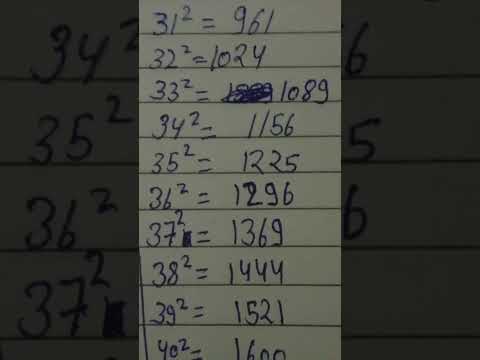 31² = 961
32² = 1024
33² = 1089
34² = 1156
35² = 1225
36² = 1296
37² = 1369
38² = 1444
39² = 1521
40² = 1600